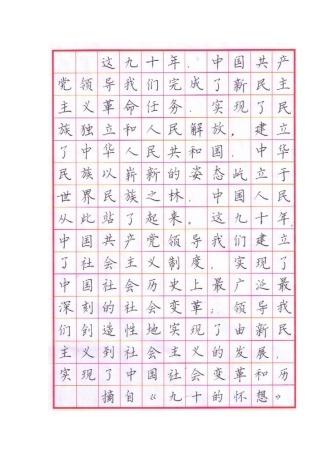 这九十年，中国共产
党领导我们完成了新民主
主义革命任务，实现了民
族独立和人民解放，建立
了中华人民共和国，中华
民族以崭新的姿态屹立于
世界民族之林，中国人民
从此站了起来。这九十年，
中国共产党领导我们建立
了社会主义制度，实现了
中国社会历史上最广泛最
深刻的社会变革，领导我
们创造性地实现了由新民
主义到社会主义的发展，
实现了中国社会变革和历
摘自《九十的怀想》